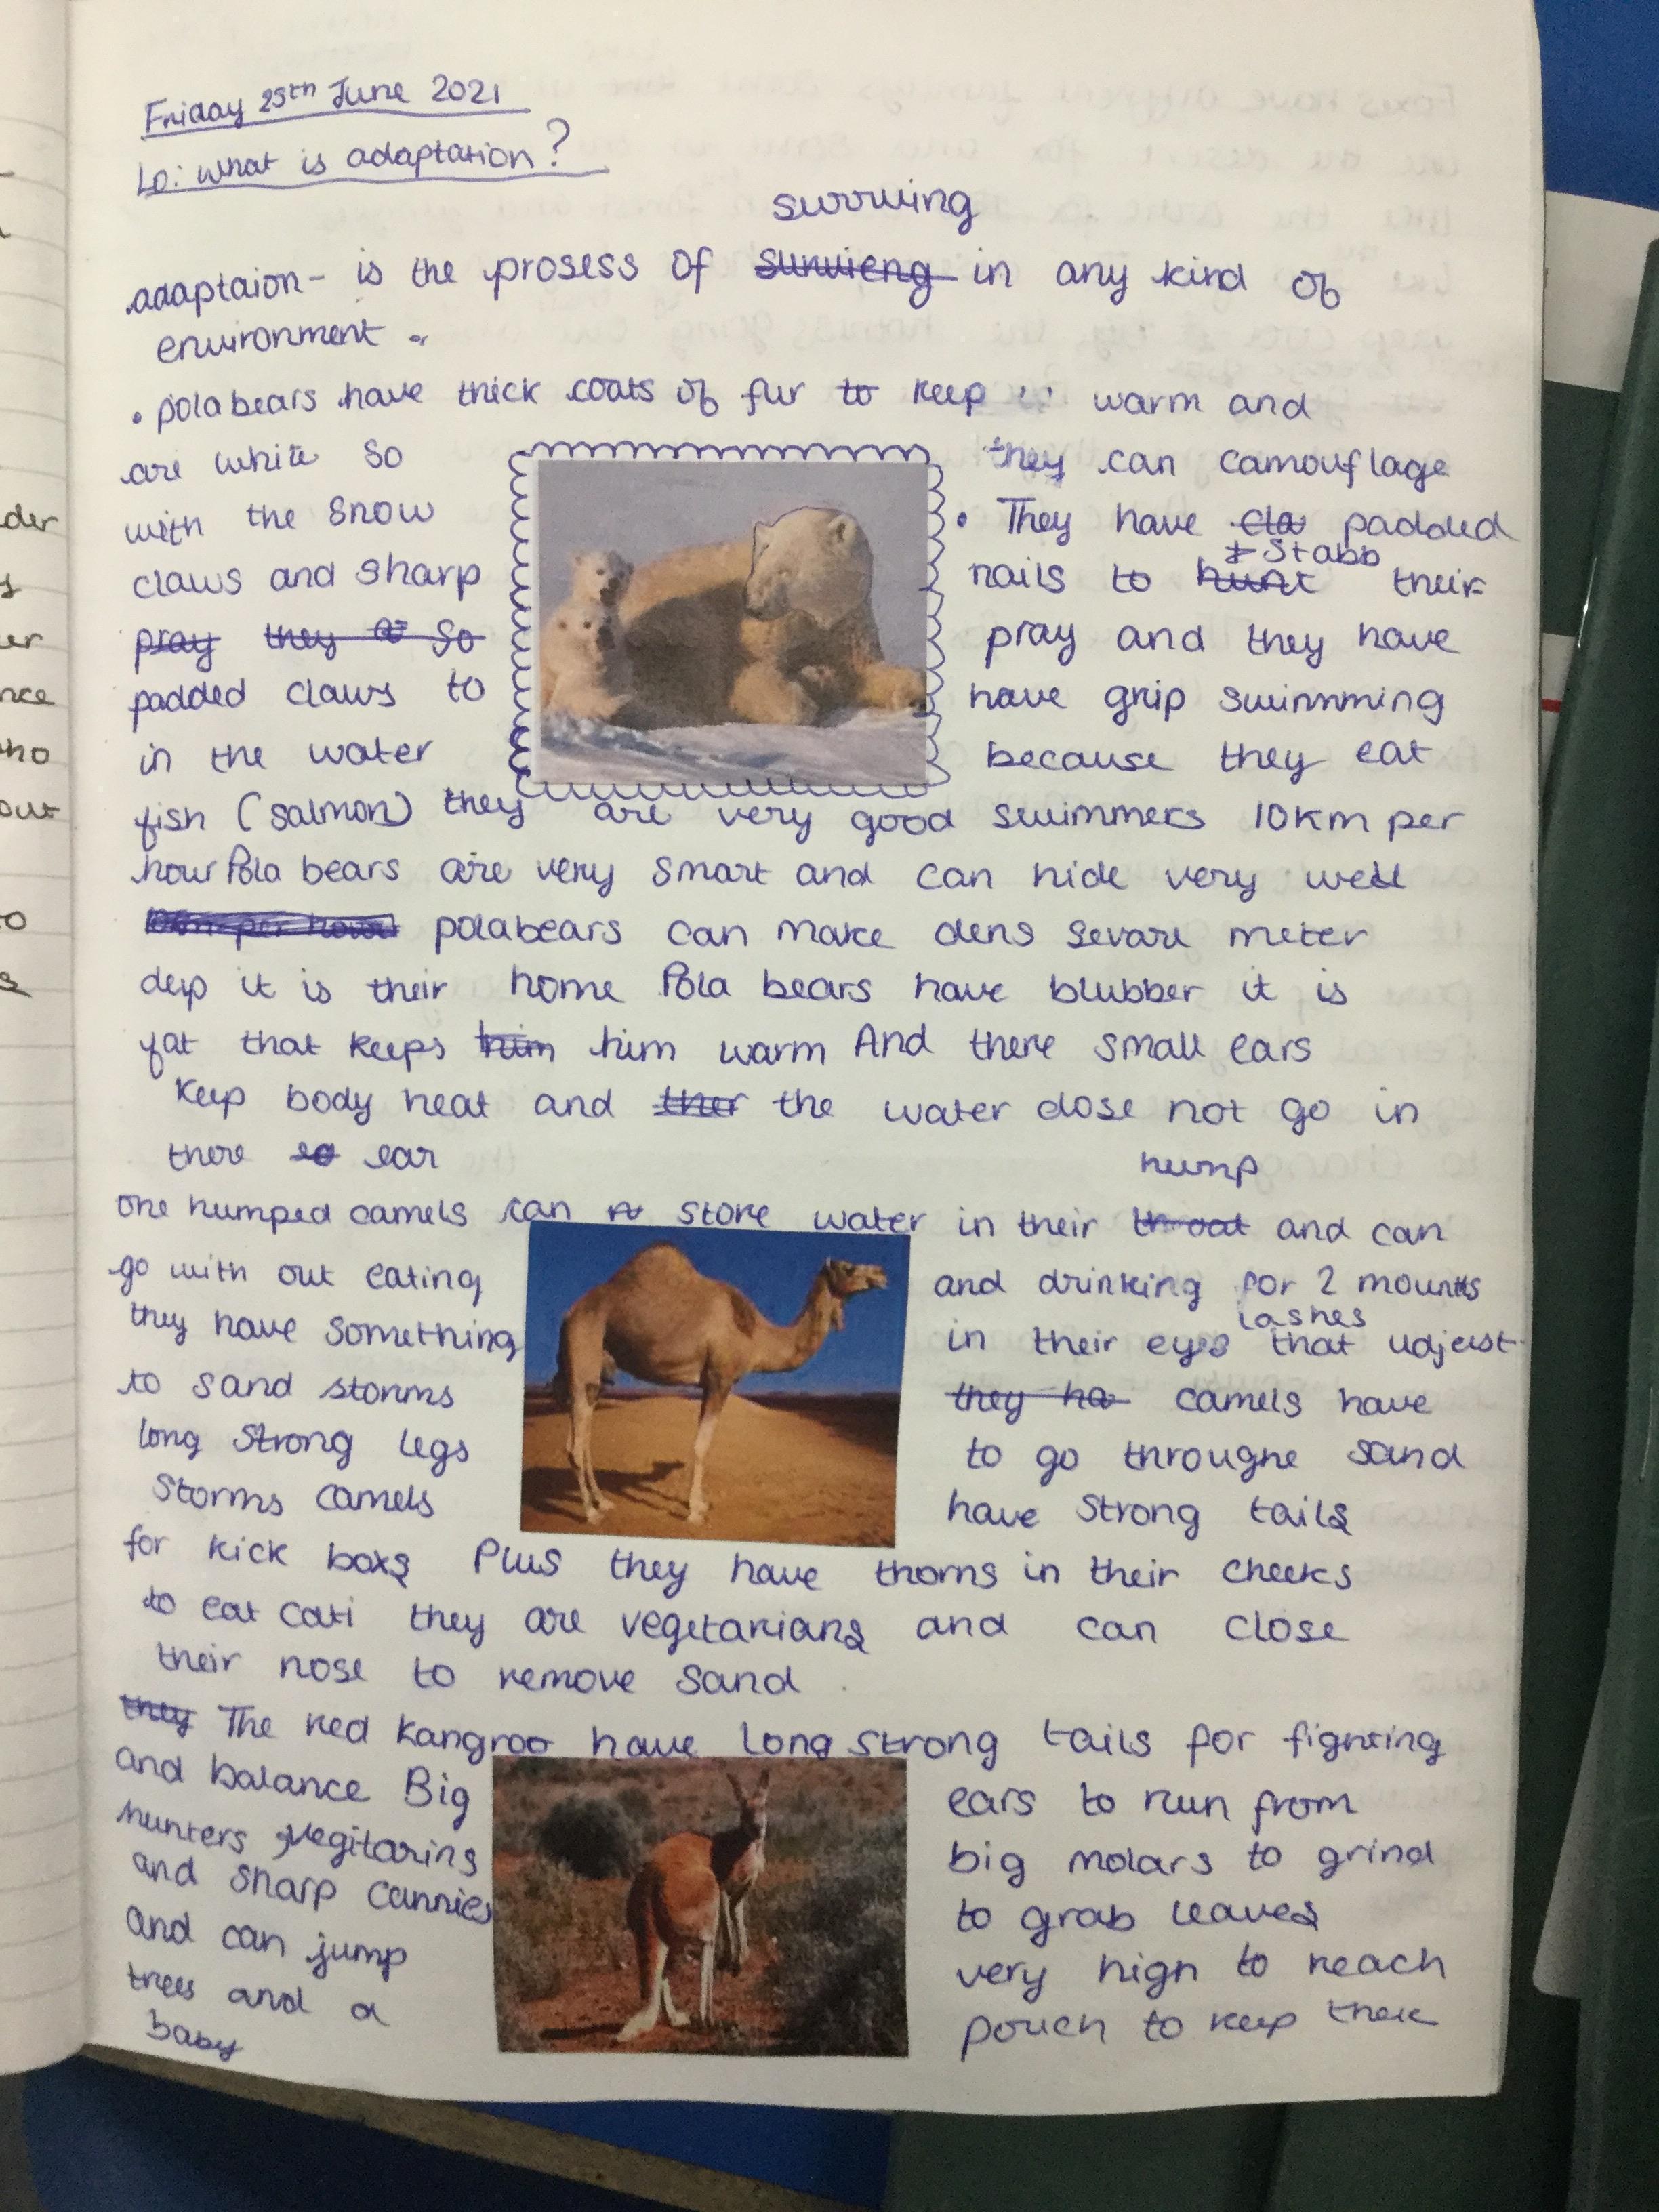 Friday 25th June 2021
Lo: what is adaptation?
surviving
adaptaion - is the prosess of survieng in any kind of
environment.
• pola bears have thick coats of fur to keep warm and
are white so they can camouflage
with the snow • They have cla padded
claws and sharp nails to hunt stabb their
pray they a so pray and they have
padded claws to have grip swimming
in the water because they eat
fish (salmon) they are very good swimmers 10km per
hour Pola bears are very smart and can hide very well
polabears can make dens sevare meter
deep it is their home Pola bears have blubber it is
fat that keeps him him warm And there small ears
keep body heat and ther the water dose not go in
there ear
hump
one humped camels can store water in their throat and can
go with out eating and drinking for 2 mounths
lashes
they have something in their eyes that udjest
to sand storms they ha camels have
long strong legs to go throughe sand
storms camels have strong tails
for kick boxs Plus they have thorns in their cheeks
to eat cati they are vegetarians and can close
their nose to remove sand
they The red kangroo have long strong tails for fighting
and balance Big ears to run from
hunters, vegitarins big molars to grind
and sharp cannies to grab leaves
and can jump very high to reach
trees and a pouch to keep there
baby
der
er
nce
ho
out
o
s